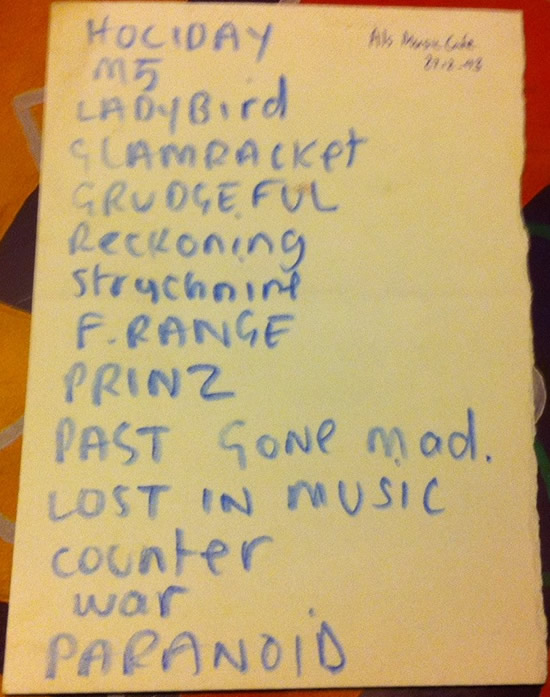 HOLIDAY
Al's Music Cafe
M5
LADYBird
GLAMRACKet
GRUDGEFUL
Reckoning
Strychnine
F.RANGE
PRINZ
PAST GONe mad.
LOST IN MUSIC
counter
war
PARANOID